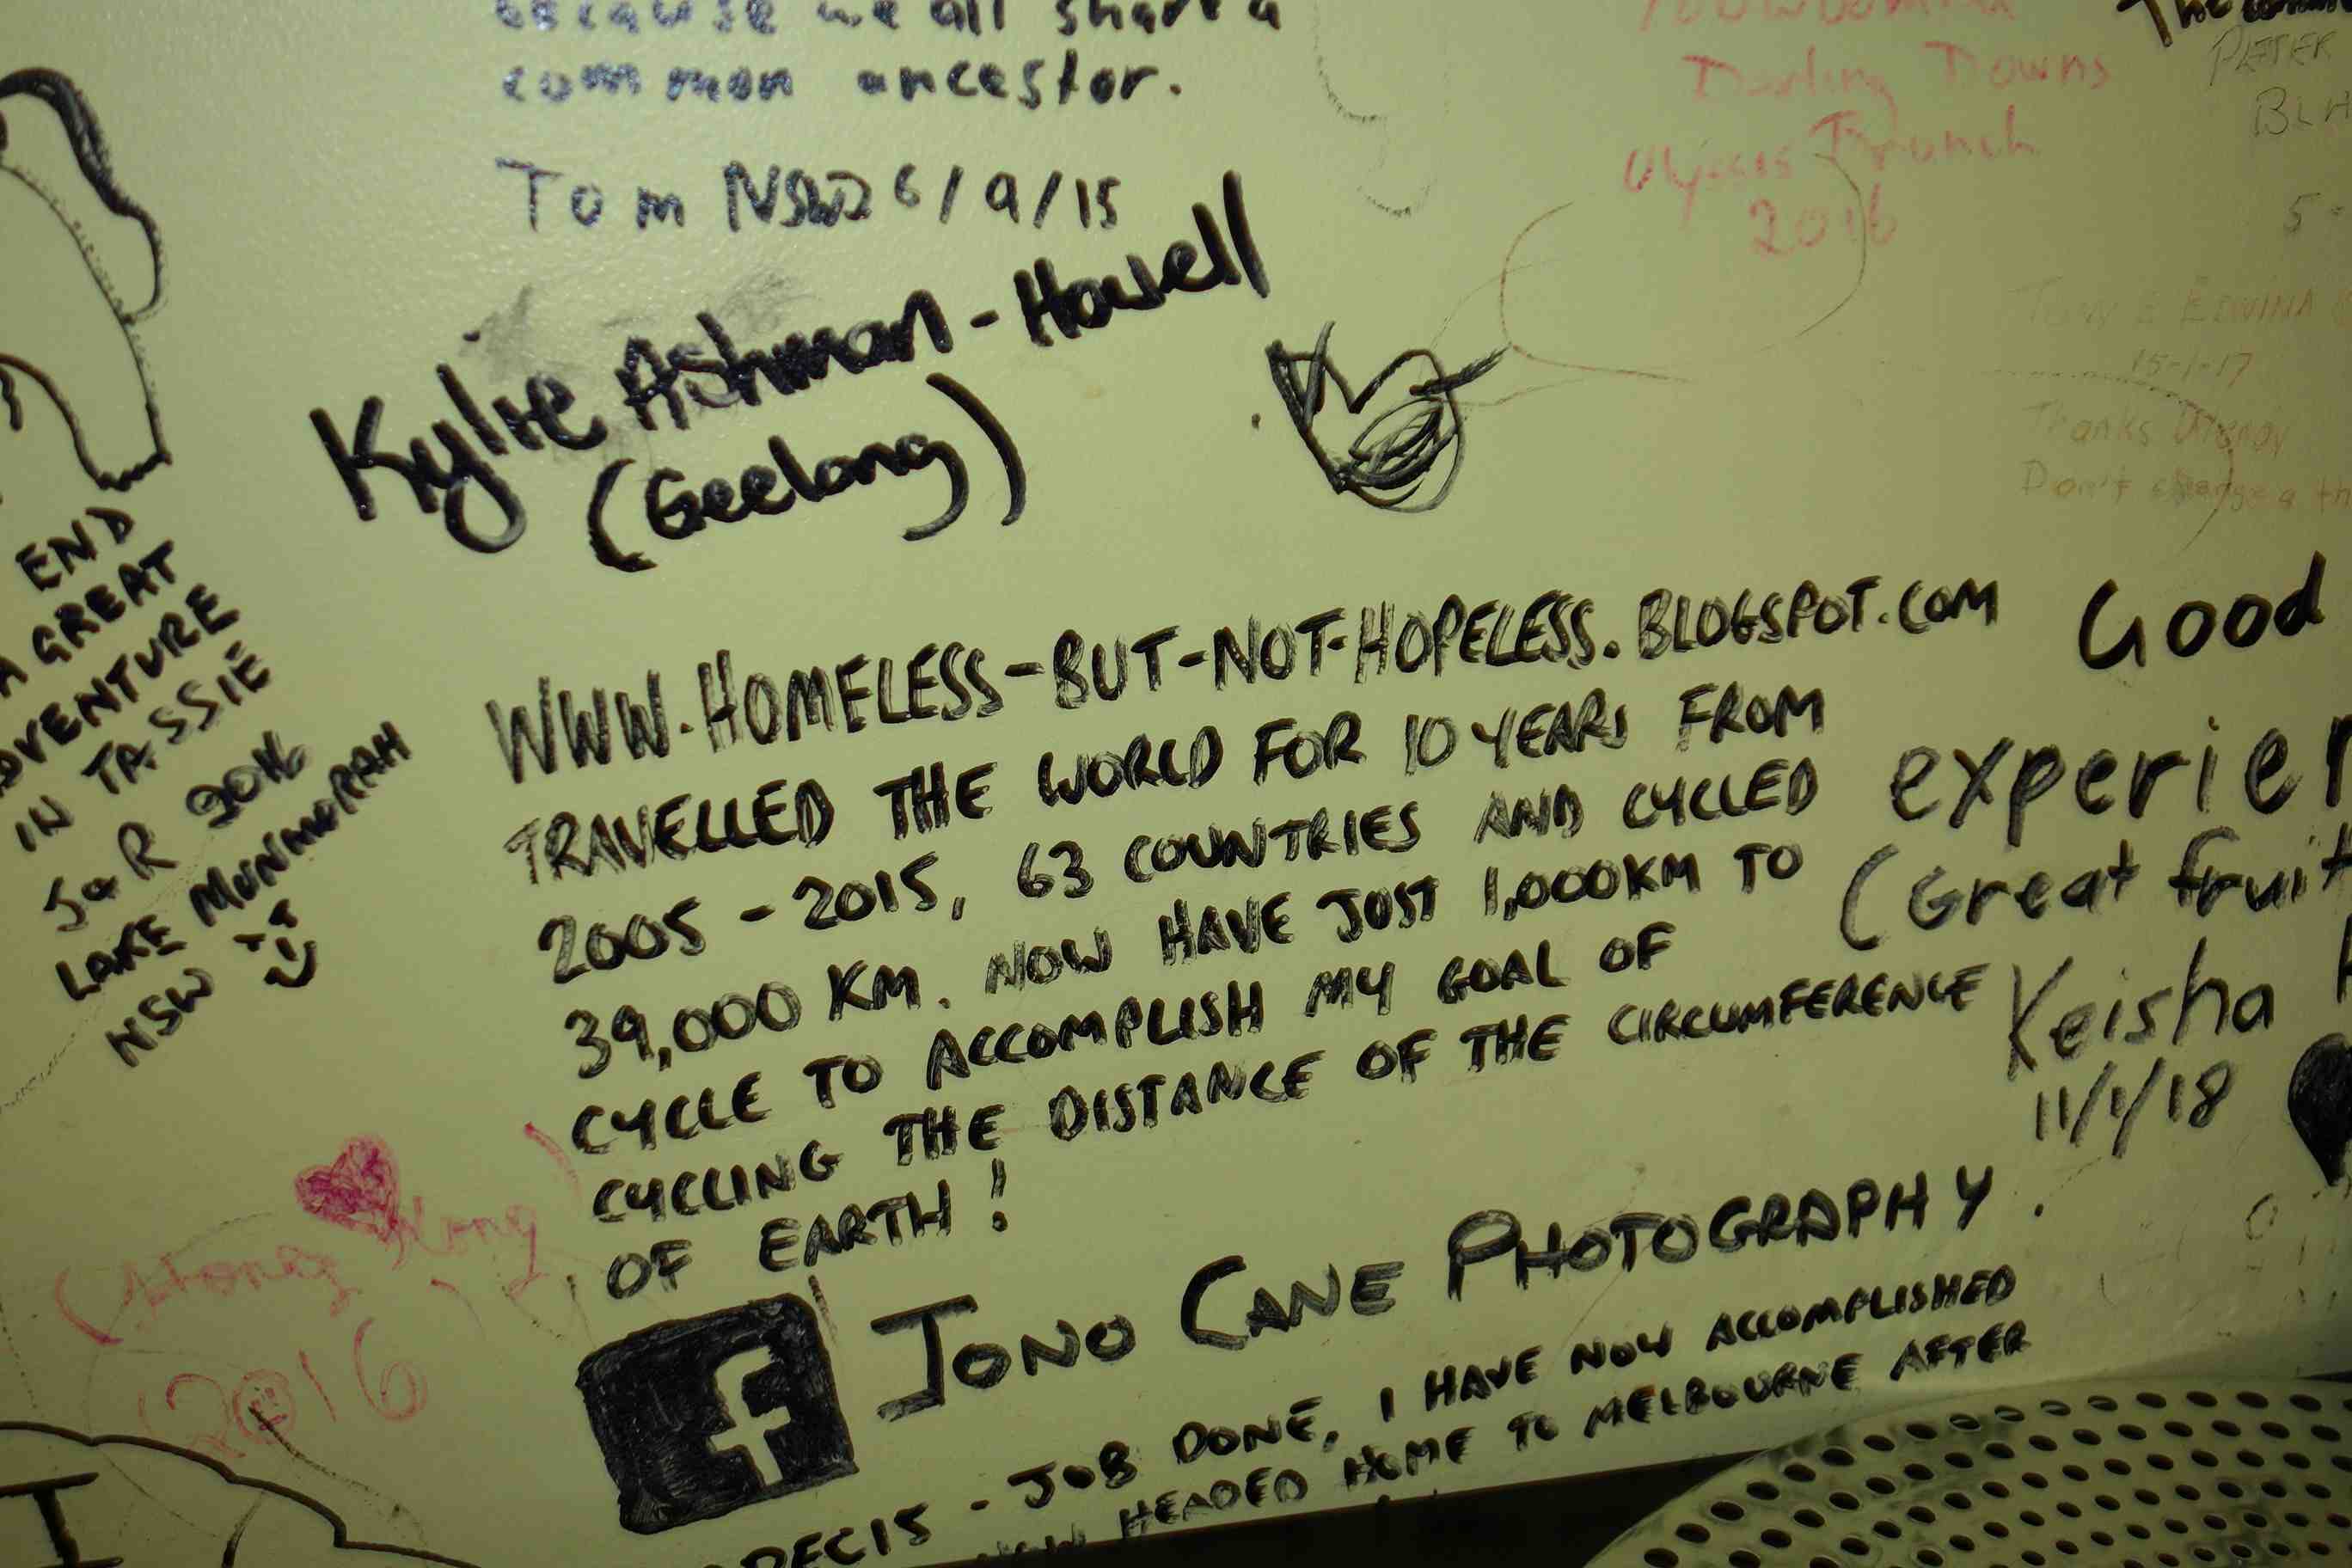 because we all share a
common ancestor.
Tom NSW 26/9/15
Kylie Ashman-Howell
(Geelong)
Darling Downs
Ulysses Branch
2016
PETER
5-
TONY & EDWINA
15-1-17
Thanks Wendy
Don't change a th
END
A GREAT
ADVENTURE
IN TASSIE
J&R 2016
LAKE MUNMORAH
NSW
WWW.HOMELESS-BUT-NOT-HOPELESS.BLOGSPOT.COM
TRAVELLED THE WORLD FOR 10 YEARS FROM
2005 - 2015, 63 COUNTRIES AND CYCLED
39,000 KM. NOW HAVE JUST 1,000KM TO
CYCLE TO ACCOMPLISH MY GOAL OF
CYCLING THE DISTANCE OF THE CIRCUMFERENCE
OF EARTH!
f JONO CANE PHOTOGRAPHY.
DEC 15 - JOB DONE, I HAVE NOW ACCOMPLISHED
NOW HEADED HOME TO MELBOURNE AFTER
Good
experien
(Great fruit
Keisha
11/1/18
(Hong Kong)
2016
I